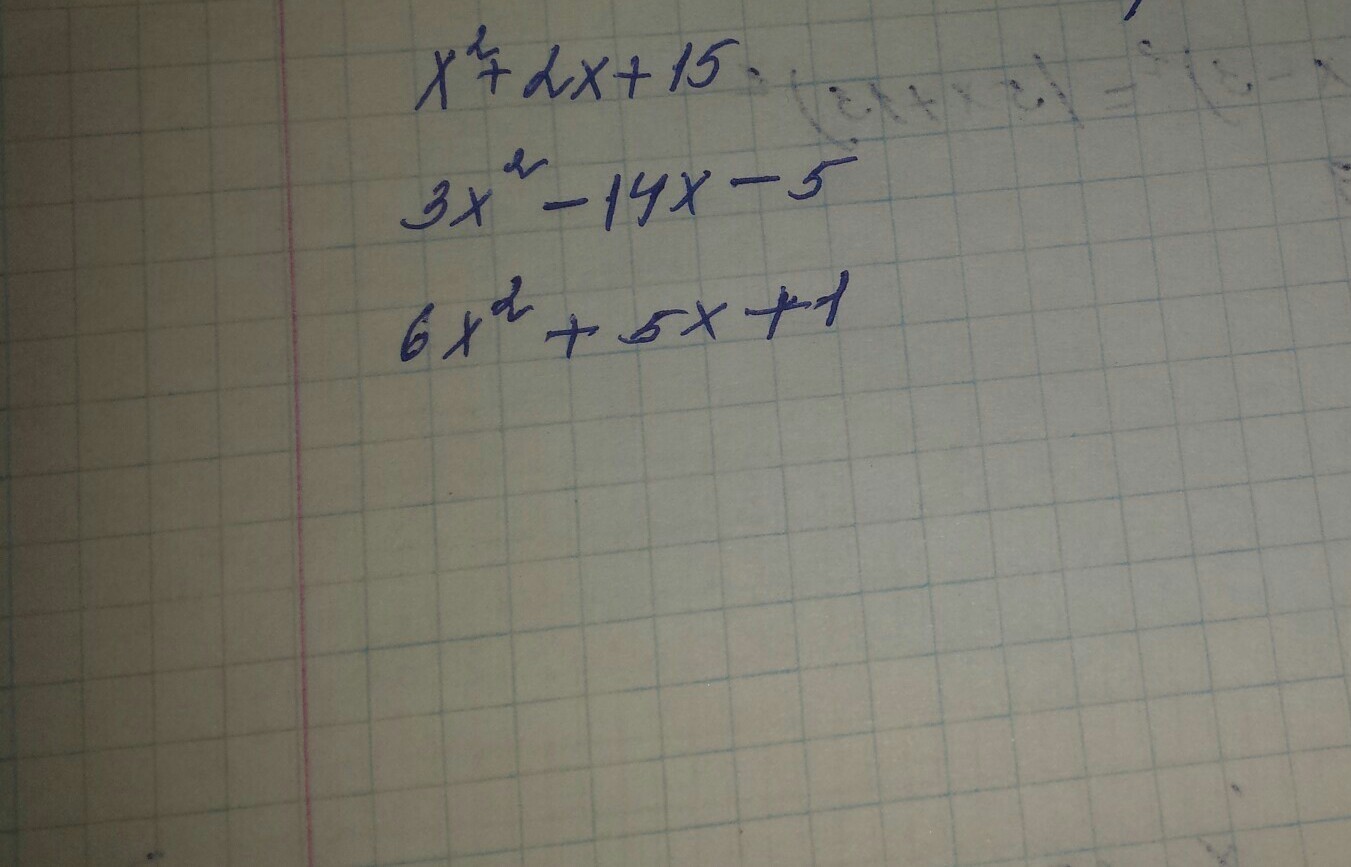 x² + 2x + 15
3x² - 14x - 5
6x² + 5x + 1